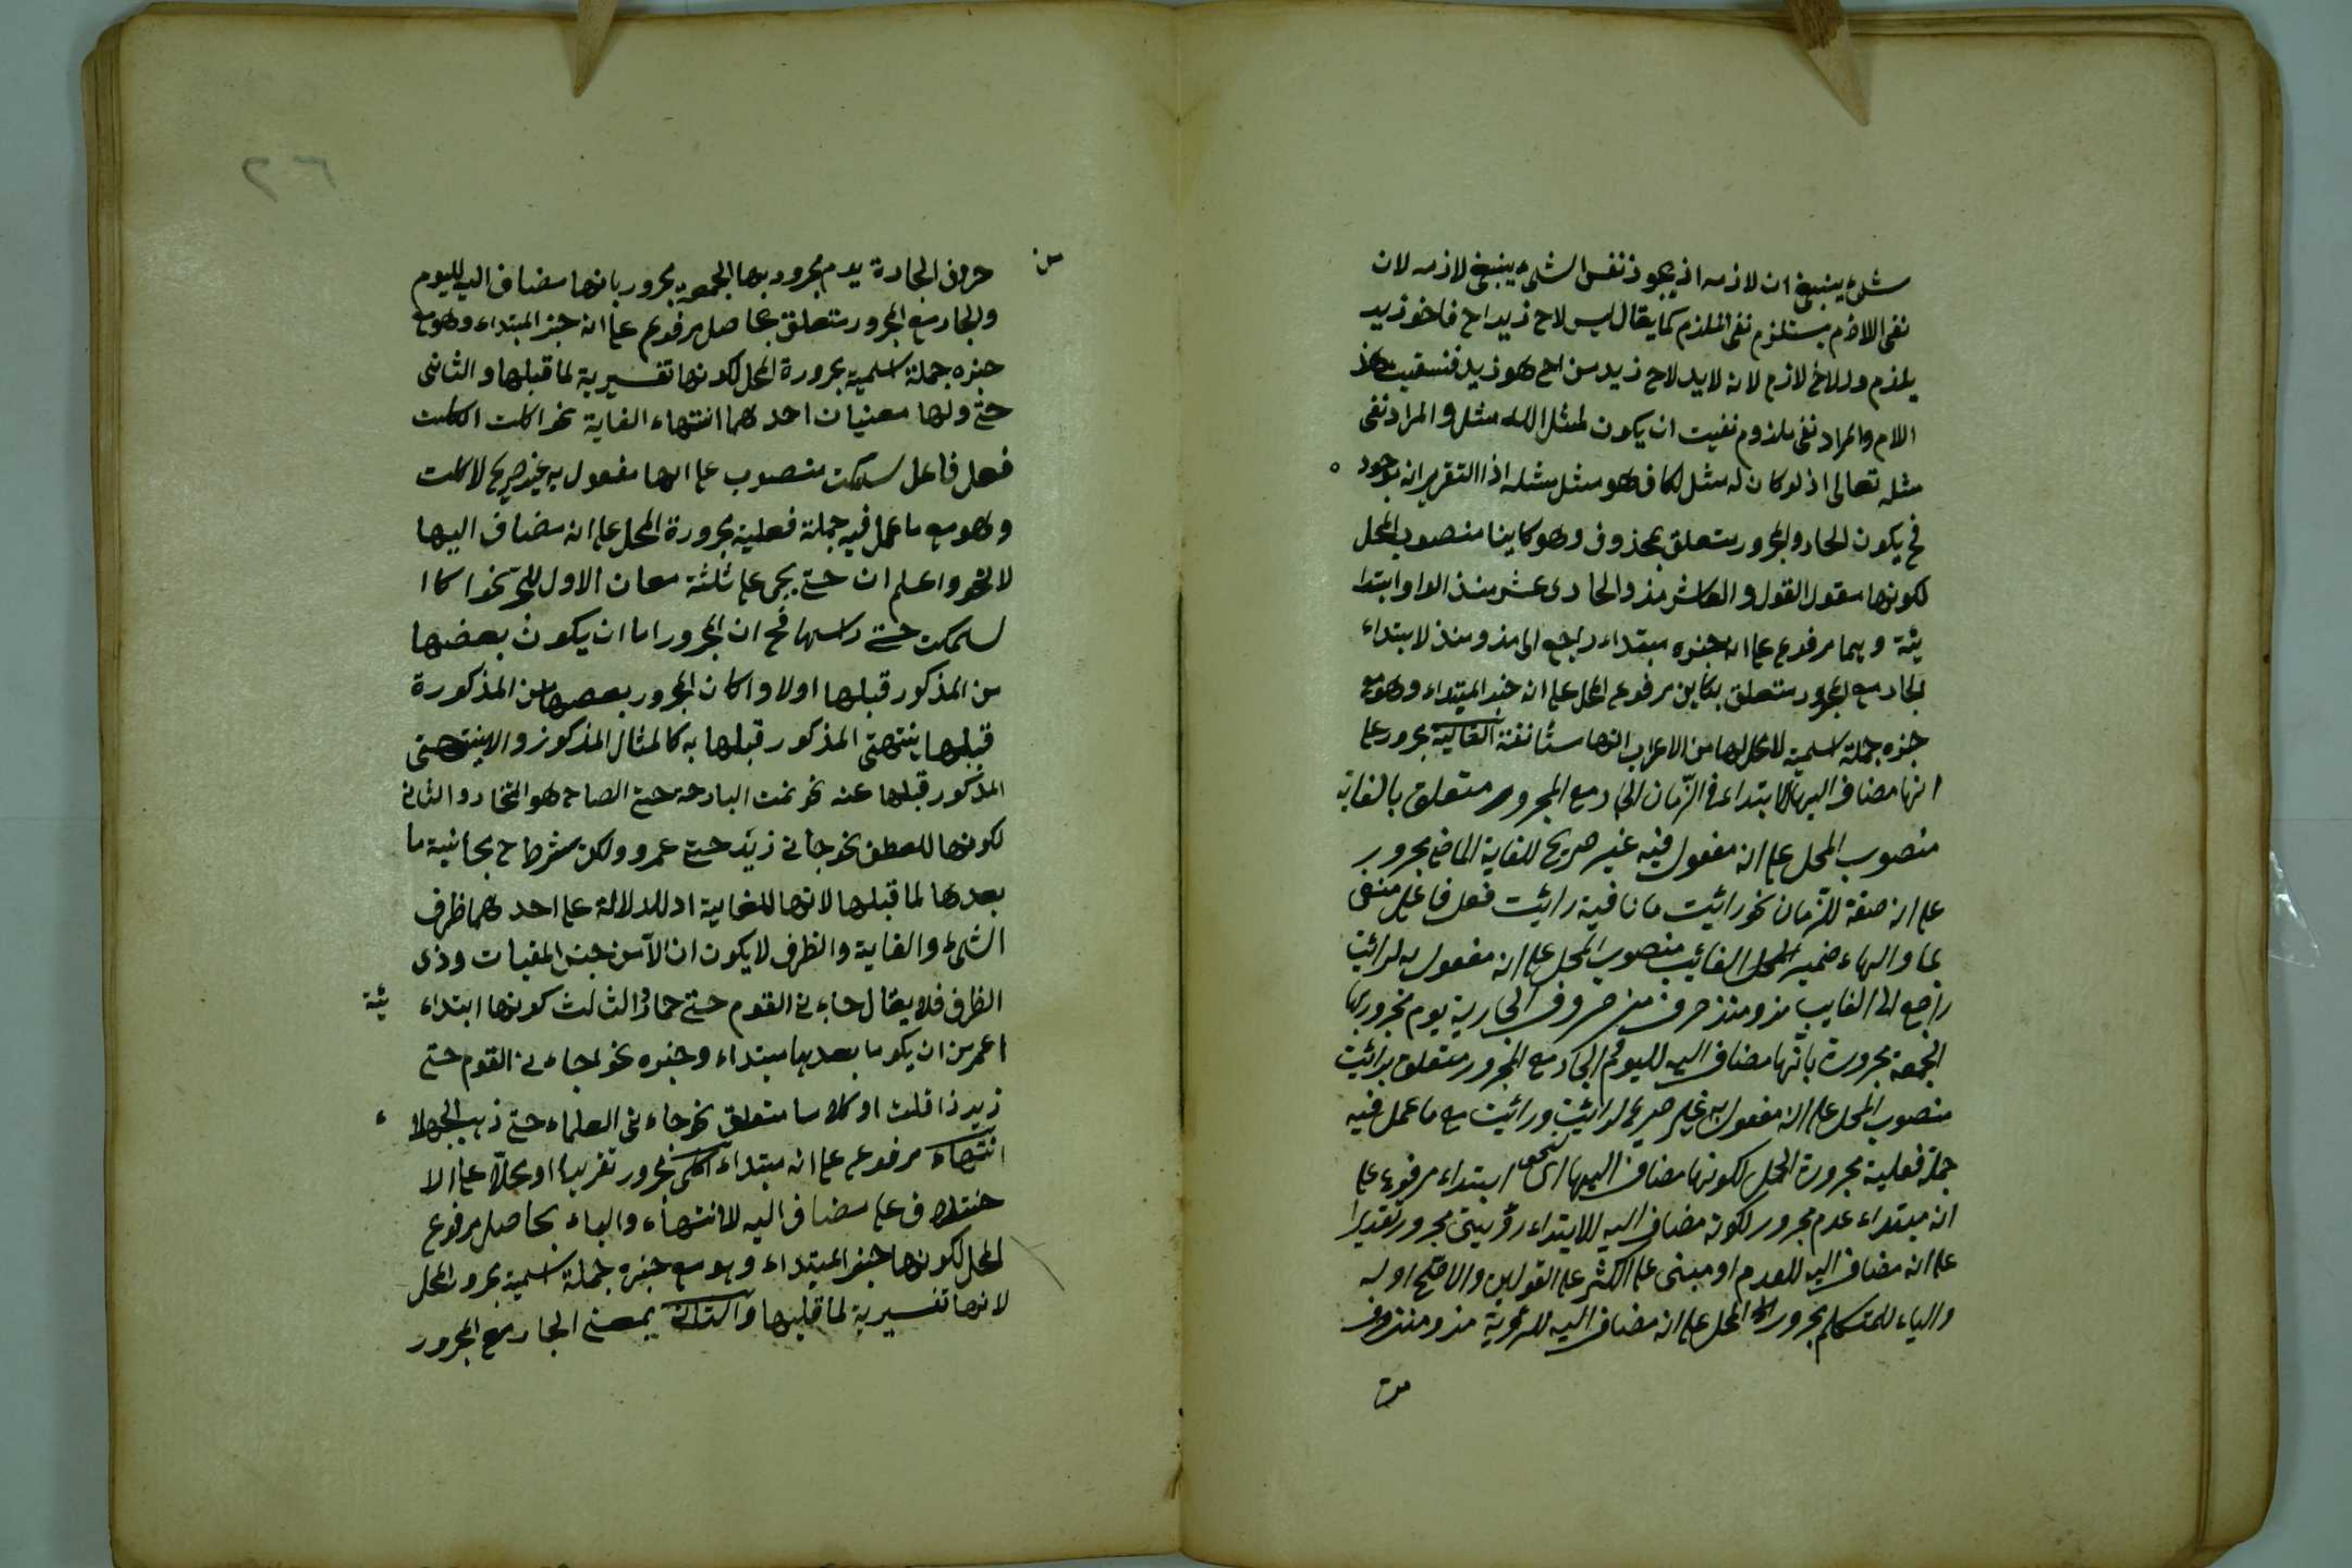 شئ ينبغى ان لازمه اذ يجوز نفس الشئ ينبغى لازمه لان
نفى اللازم يستلزم نفى الملزم كما يقال ليس لاخ زيد اخ فاخو زيد
يلزم وللاخ لازم لانه لا بد لاخ زيد من اخ هو زيد فنسقيت هذ
اللام والمراد نفى ملزوم نفيت ان يكون لمثل الله مثل والمراد نفى
مثله تعالى اذ لو كان له مثل لكان هو مثل مثله اذا التقرير انه موجود
فح يكون الجار والمجرور متعلق بمحذوف وهو كاينا منصوب المحل
لكونها مقول القول والعاشر مذ والحادى عشر منذ الواو ابتدا
ئية وبهما مرفوع على انه خبره مبتداء راجع الى مذ ومنذ لابتداء
لجار مع المجرور متعلق بكاين مرفوع المحل على انه خبر المبتداء وهو مع
خبره جملة اسمية لا محل لها من الاعراب انها مستأنفة الغاية مجرور على
انها مضاف اليها لابتداء فى الزمان الجار مع المجرور متعلق بالغاية
منصوب المحل على انه مفعول فيه غير صريح للغاية الماضى مجرور
على انه صفة للزمان نحو رائيت ما نافية رائيت فعل فاعل منفى
بما والهاء ضمير الغائب منصوب المحل على انه مفعول به لرائيت
راجع الى الغايب مذ ومنذ حرف من حروف الجارية يوم مجرور بها
الجمعة مجرورة بانها مضاف اليه لليوم الجار مع المجرور متعلق برائيت
منصوب المحل على انه مفعول به غير صريح لرائيت ورائيت مع ما عمل فيه
جملة فعلية مجرورة المحل لكونها مضاف اليها لنحو ابتداء مرفوع على
انه مبتداء عدم مجرور لكونه مضاف اليه للابتداء رؤيتى مجرور تقديرا
على انه مضاف اليه للعدم او مبنى على الكثر على القولين والاصح اوله
والياء للمتكلم مجرور المحل على انه مضاف اليه للرؤية مذ ومنذ حرف
من
من
حروف الجارة يوم مجرور بها الجمعة مجرور بانها مضاف اليه لليوم
والجار مع المجرور متعلق بحاصل مرفوع على انه خبر المبتداء وهو مع
خبره جملة اسمية مجرورة المحل لكونها تفسيرية لما قبلها والثانى
حتى ولها معنيان احدهما انتهاء الغاية نحو اكلت اكلت
فعل فاعل سمكت منصوب على انها مفعول به غير صريح لاكلت
وهو مع ما عمل فيه جملة فعلية مجرورة المحل على انه مضاف اليها
لانحو واعلم ان حتى يجى على ثلثة معان الاول للجر نحو اكا ا
لسمكت حتى راسها فح ان المجرور اما ان يكون بعضها
من المذكور قبلها اولا وا كان المجرور بعضها من المذكورة
قبلها ينتهى المذكور قبلها به كالمثال المذكور والا ينتهى
المذكور قبلها عنه نحو نمت البارحة حتى الصباح هو المختار والثانى
لكونها للعطف نحو جانى زيد حتى عمرو ولكن بشرط مجانية ما
بعدها لما قبلها لانها للغاية او للدلالة على احدهما ظرف
الشئ والغاية والظرف لا يكون ان الا من جنس المغيات وذى
الظرف فلا يقال جاءنى القوم حتى حمار والثالث كونها ابتداء
ئية
اعم من ان يكو ما بعدها مبتداء وخبره نحو جاءنى القوم حتى
زيد ذا قلت او كلاما متعلق نحو جاءنى العلماء حتى ذهب الجهلا
ء
انتهاء مرفوع على انه مبتداء مجرور تقديرا او محلا على الا
ختلاف على مضاف اليه لانتهاء والباء بحاصل مرفوع
لمحل لكونها خبر المبتداء وهو مع خبره جملة اسمية مجرور المحل
لانها تفسيرية لما قبلها والثانى بمعنى الجار مع المجرور
٢٦